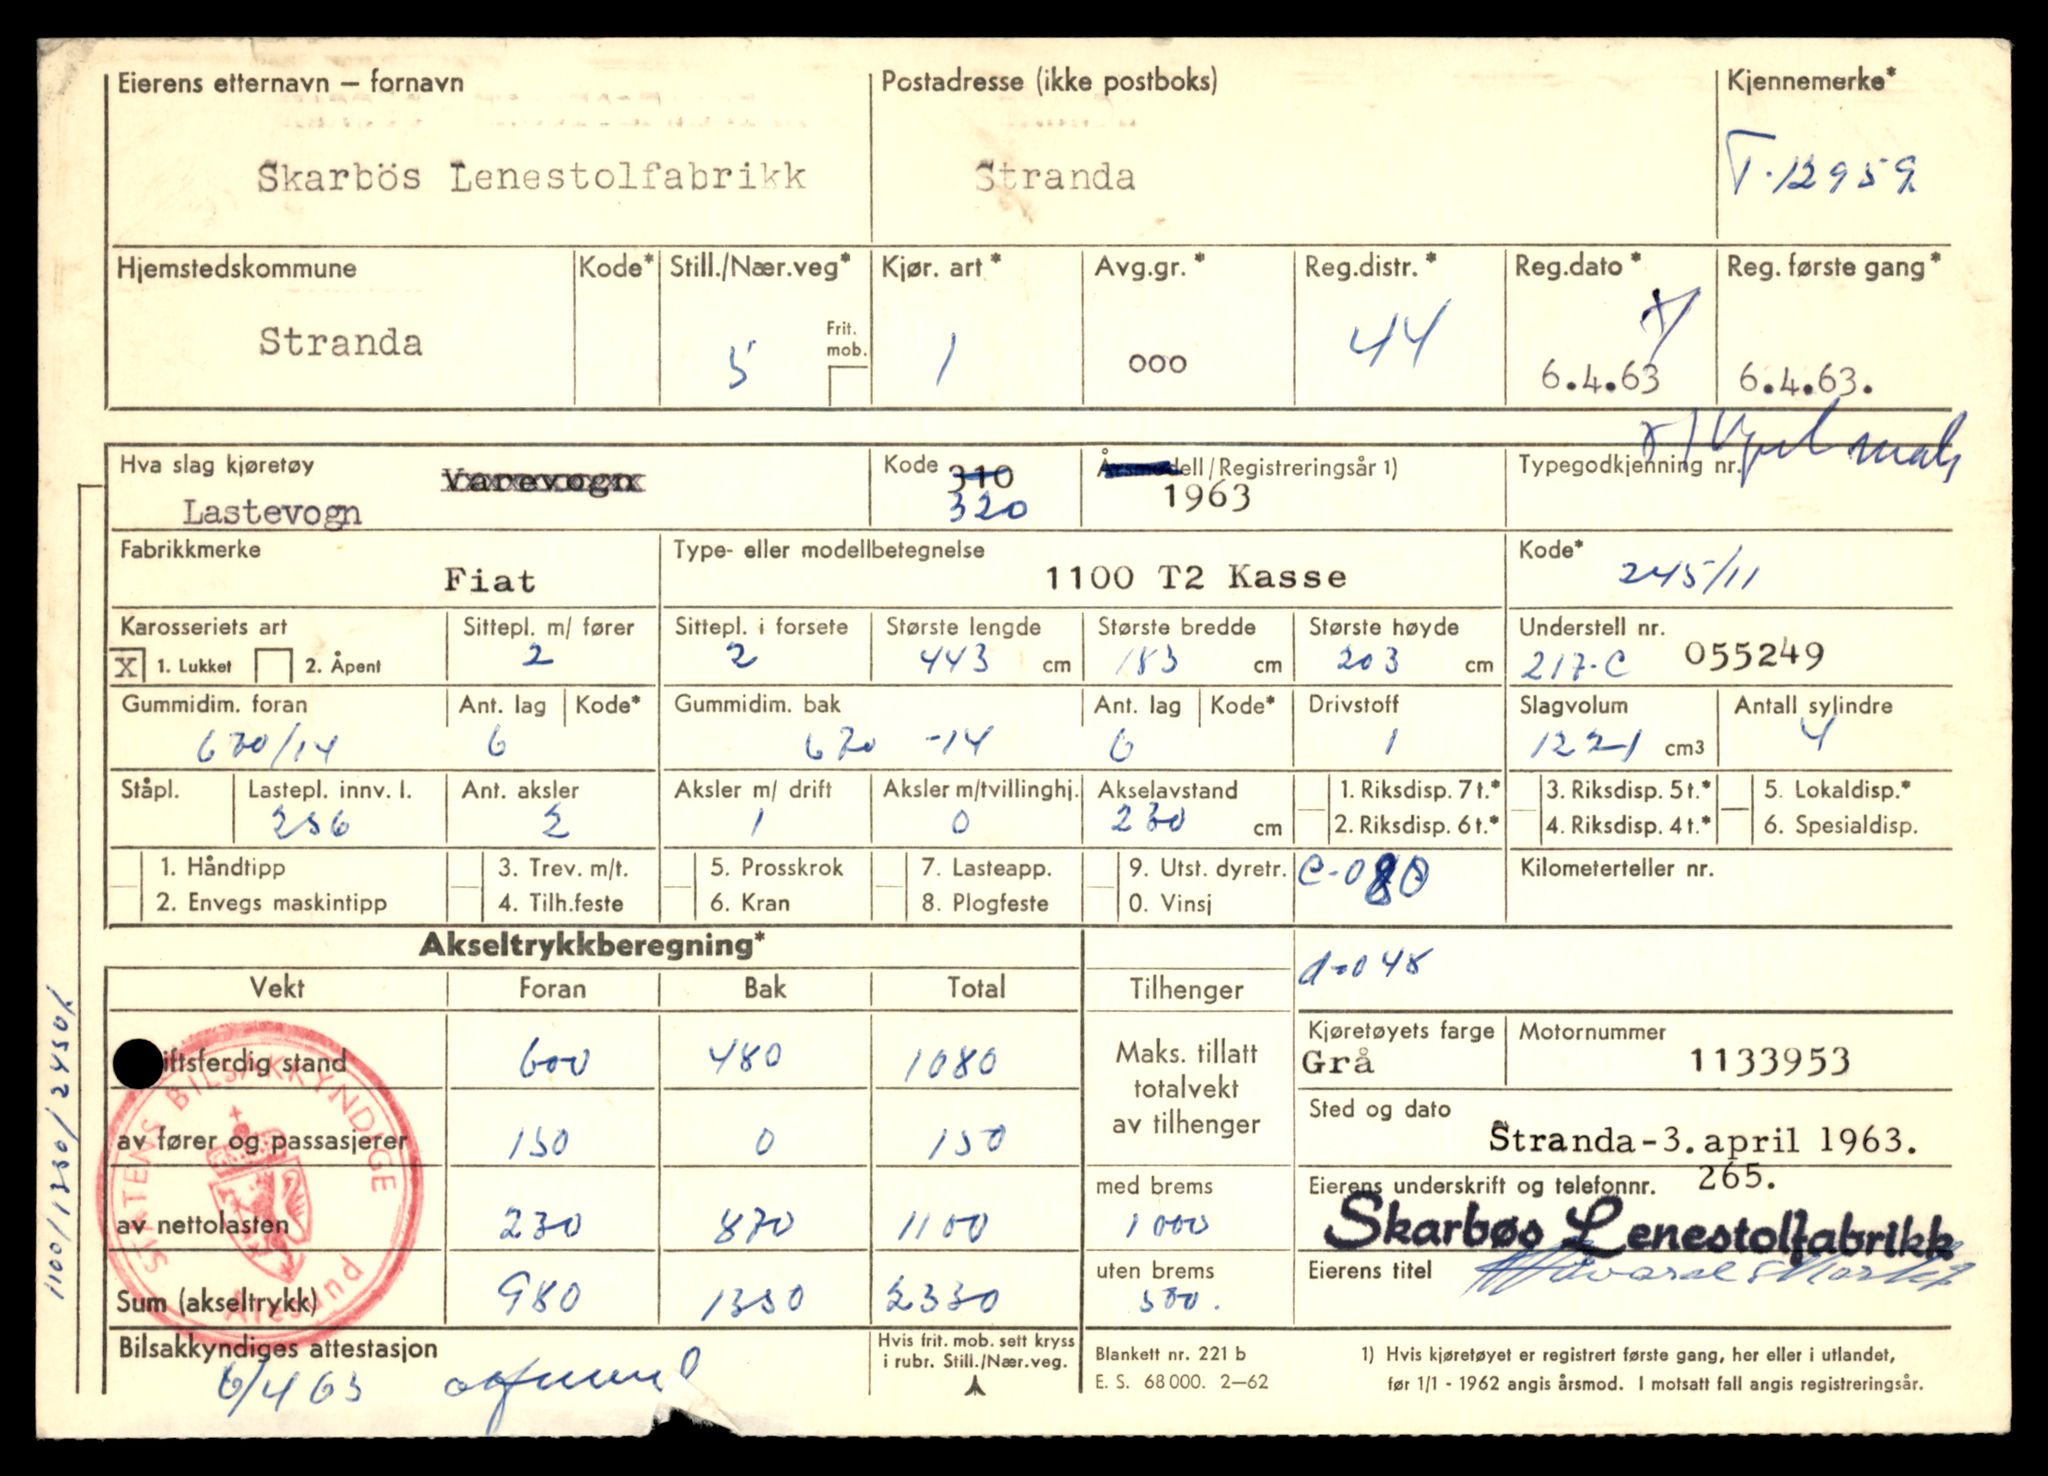 Eierens etternavn – fornavn Postadresse (ikke postboks) Kjennemerke*
Skarbös Lenestolfabrikk Stranda T-12959
Hjemstedskommune Kode* Still./Nær.veg* Kjør. art* Avg.gr.* Reg.distr.* Reg.dato* Reg. første gang*
Stranda 5 Frit. mob. 1 000 44 6.4.63 6.4.63.
Hva slag kjøretøy Varevogn Kode 310 Årsmodell/Registreringsår 1) Typegodkjenning nr.
Lastevogn 320 1963
Fabrikkmerke Type- eller modellbetegnelse Kode*
Fiat 1100 T2 Kasse 245/11
Karosseriets art Sittepl. m/ fører Sittepl. i forsete Største lengde Største bredde Største høyde Understell nr.
X 1. Lukket 2. Åpent 2 2 443 cm 183 cm 203 cm 217-C 055249
Gummidim. foran Ant. lag Kode* Gummidim. bak Ant. lag Kode* Drivstoff Slagvolum Antall sylindre
670/14 6 670 -14 6 1 1221 cm3 4
Ståpl. Lastepl. innv. l. Ant. aksler Aksler m/ drift Aksler m/tvillinghj. Akselavstand 1. Riksdisp. 7 t.* 3. Riksdisp. 5 t.* 5. Lokaldisp.*
256 2 1 0 230 cm 2. Riksdisp. 6 t.* 4. Riksdisp. 4 t.* 6. Spesialdisp.
1. Håndtipp 3. Trev. m/t. 5. Prosskrok 7. Lasteapp. 9. Utst. dyretr. C-080 Kilometerteller nr.
2. Envegs maskintipp 4. Tilh.feste 6. Kran 8. Plogfeste 0. Vinsj
Akseltrykkberegning*
d-048
Vekt Foran Bak Total Tilhenger
Kjøretøyets farge Motornummer
iftsferdig stand 600 480 1080 Maks. tillatt Grå 1133953
totalvekt
Sted og dato
av fører og passasjerer 150 0 150 av tilhenger Stranda-3. april 1963.
med brems Eierens underskrift og telefonnr. 265.
av nettolasten 230 870 1100 1000 Skarbøs Lenestolfabrikk
uten brems Eierens titel
Sum (akseltrykk) 980 1350 2330 500.
STATENS BILSAKKYNDIGE
Ålesund
Bilsakkyndiges attestasjon Hvis frit. mob. sett kryss i rubr. Still./Nær.veg.
6/4 63
Blankett nr. 221 b
E. S. 68 000. 2–62
1) Hvis kjøretøyet er registrert første gang, her eller i utlandet,
før 1/1 - 1962 angis årsmod. I motsatt fall angis registreringsår.
1100/1350/2450/